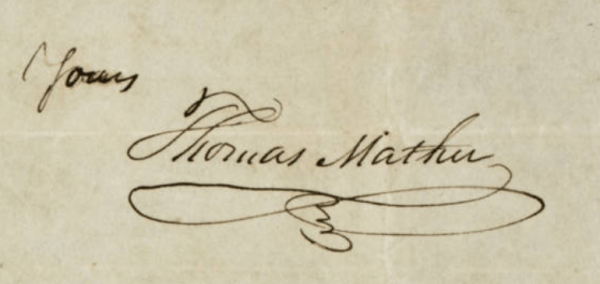 Yours
Thomas Mather